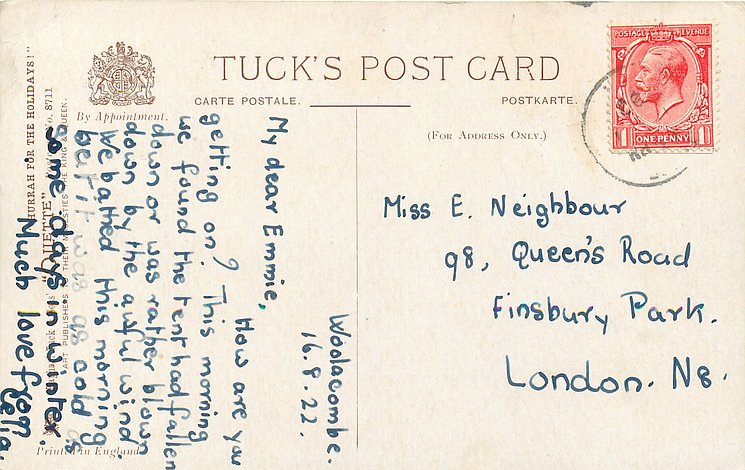 TUCK'S POST CARD
CARTE POSTALE.
POSTKARTE.
By Appointment.
(FOR ADDRESS ONLY.)
POSTAGE REVENUE
1 ONE PENNY 1
Woolacombe.
16.8.22.
My dear Emmie,
How are you
getting on? This morning
we found the tent had fallen
down or was rather blown
down by the awful wind
We bathed this morning
but it was as cold as
some days in winter.
Much love from
Celia.
Miss E. Neighbour
98, Queen's Road
Finsbury Park.
London. N8.
"HURRAH FOR THE HOLIDAYS!"
No. 8711
ART PUBLISHERS TO THEIR MAJESTIES THE KING & QUEEN.
Printed in England